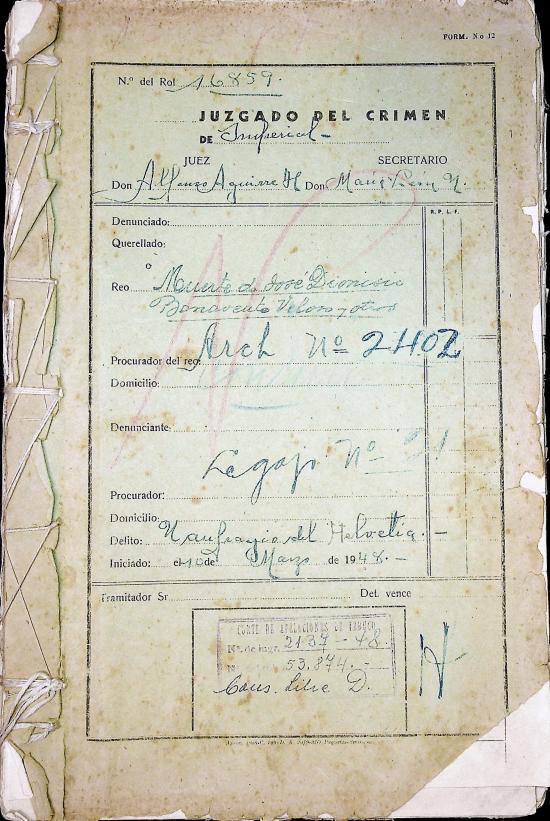 FORM. No 12
N.º del Rol 16859.
JUZGADO DEL CRIMEN
DE Imperial-
JUEZ SECRETARIO
Don Alfonso Aguirre H Don Mario
R. P. L. F.
Denunciado:
Querellado:
o
Reo Muerte de José Dionisio
Benavente Veloso y otros
Arch Nº 2402
Procurador del reo:
Domicilio:
Denunciante:
Legajo Nº 21
Procurador:
Domicilio:
Delito: Naufragio del Helvetia. -
Iniciado: el 10 de Marzo de 1948. -
Tramitador Sr. Det. vence
CORTE DE APELACIONES DE TEMUCO
Nº. de ingr. 2137 - 48
53.874. -
Cons. Libre D.